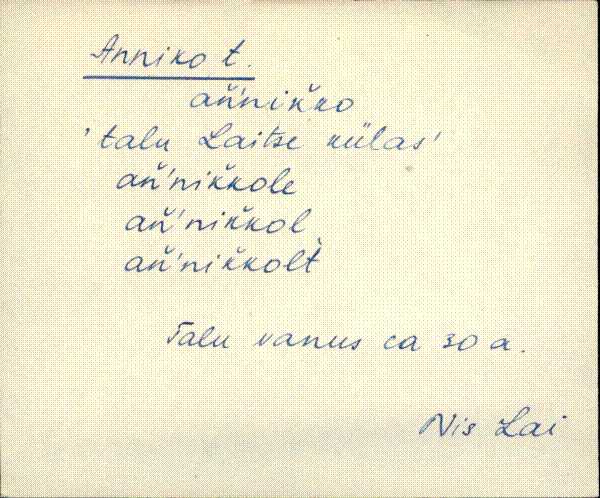 Anniko t.
an̆'nik̆ko
'talu Laitse külas'
an̆'nik̆kole
an̆'nik̆kol
an̆'nik̆kolt̀
Talu vanus ca 30 a.
Nis Lai